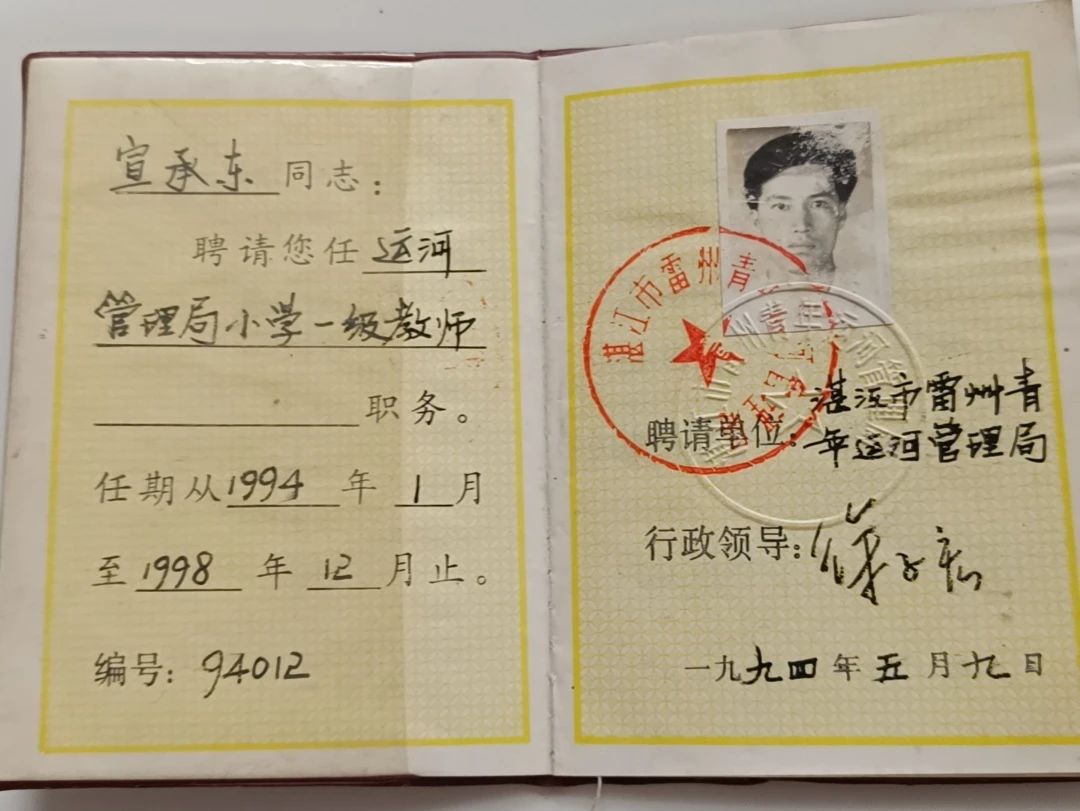 宣承东同志：
聘请您任运河
管理局小学一级教师
职务。
任期从1994年1月
至1998年12月止。
编号：94012
湛江市雷州青
聘请单位：湛江市雷州青
年运河管理局
行政领导：
一九九四年五月九日